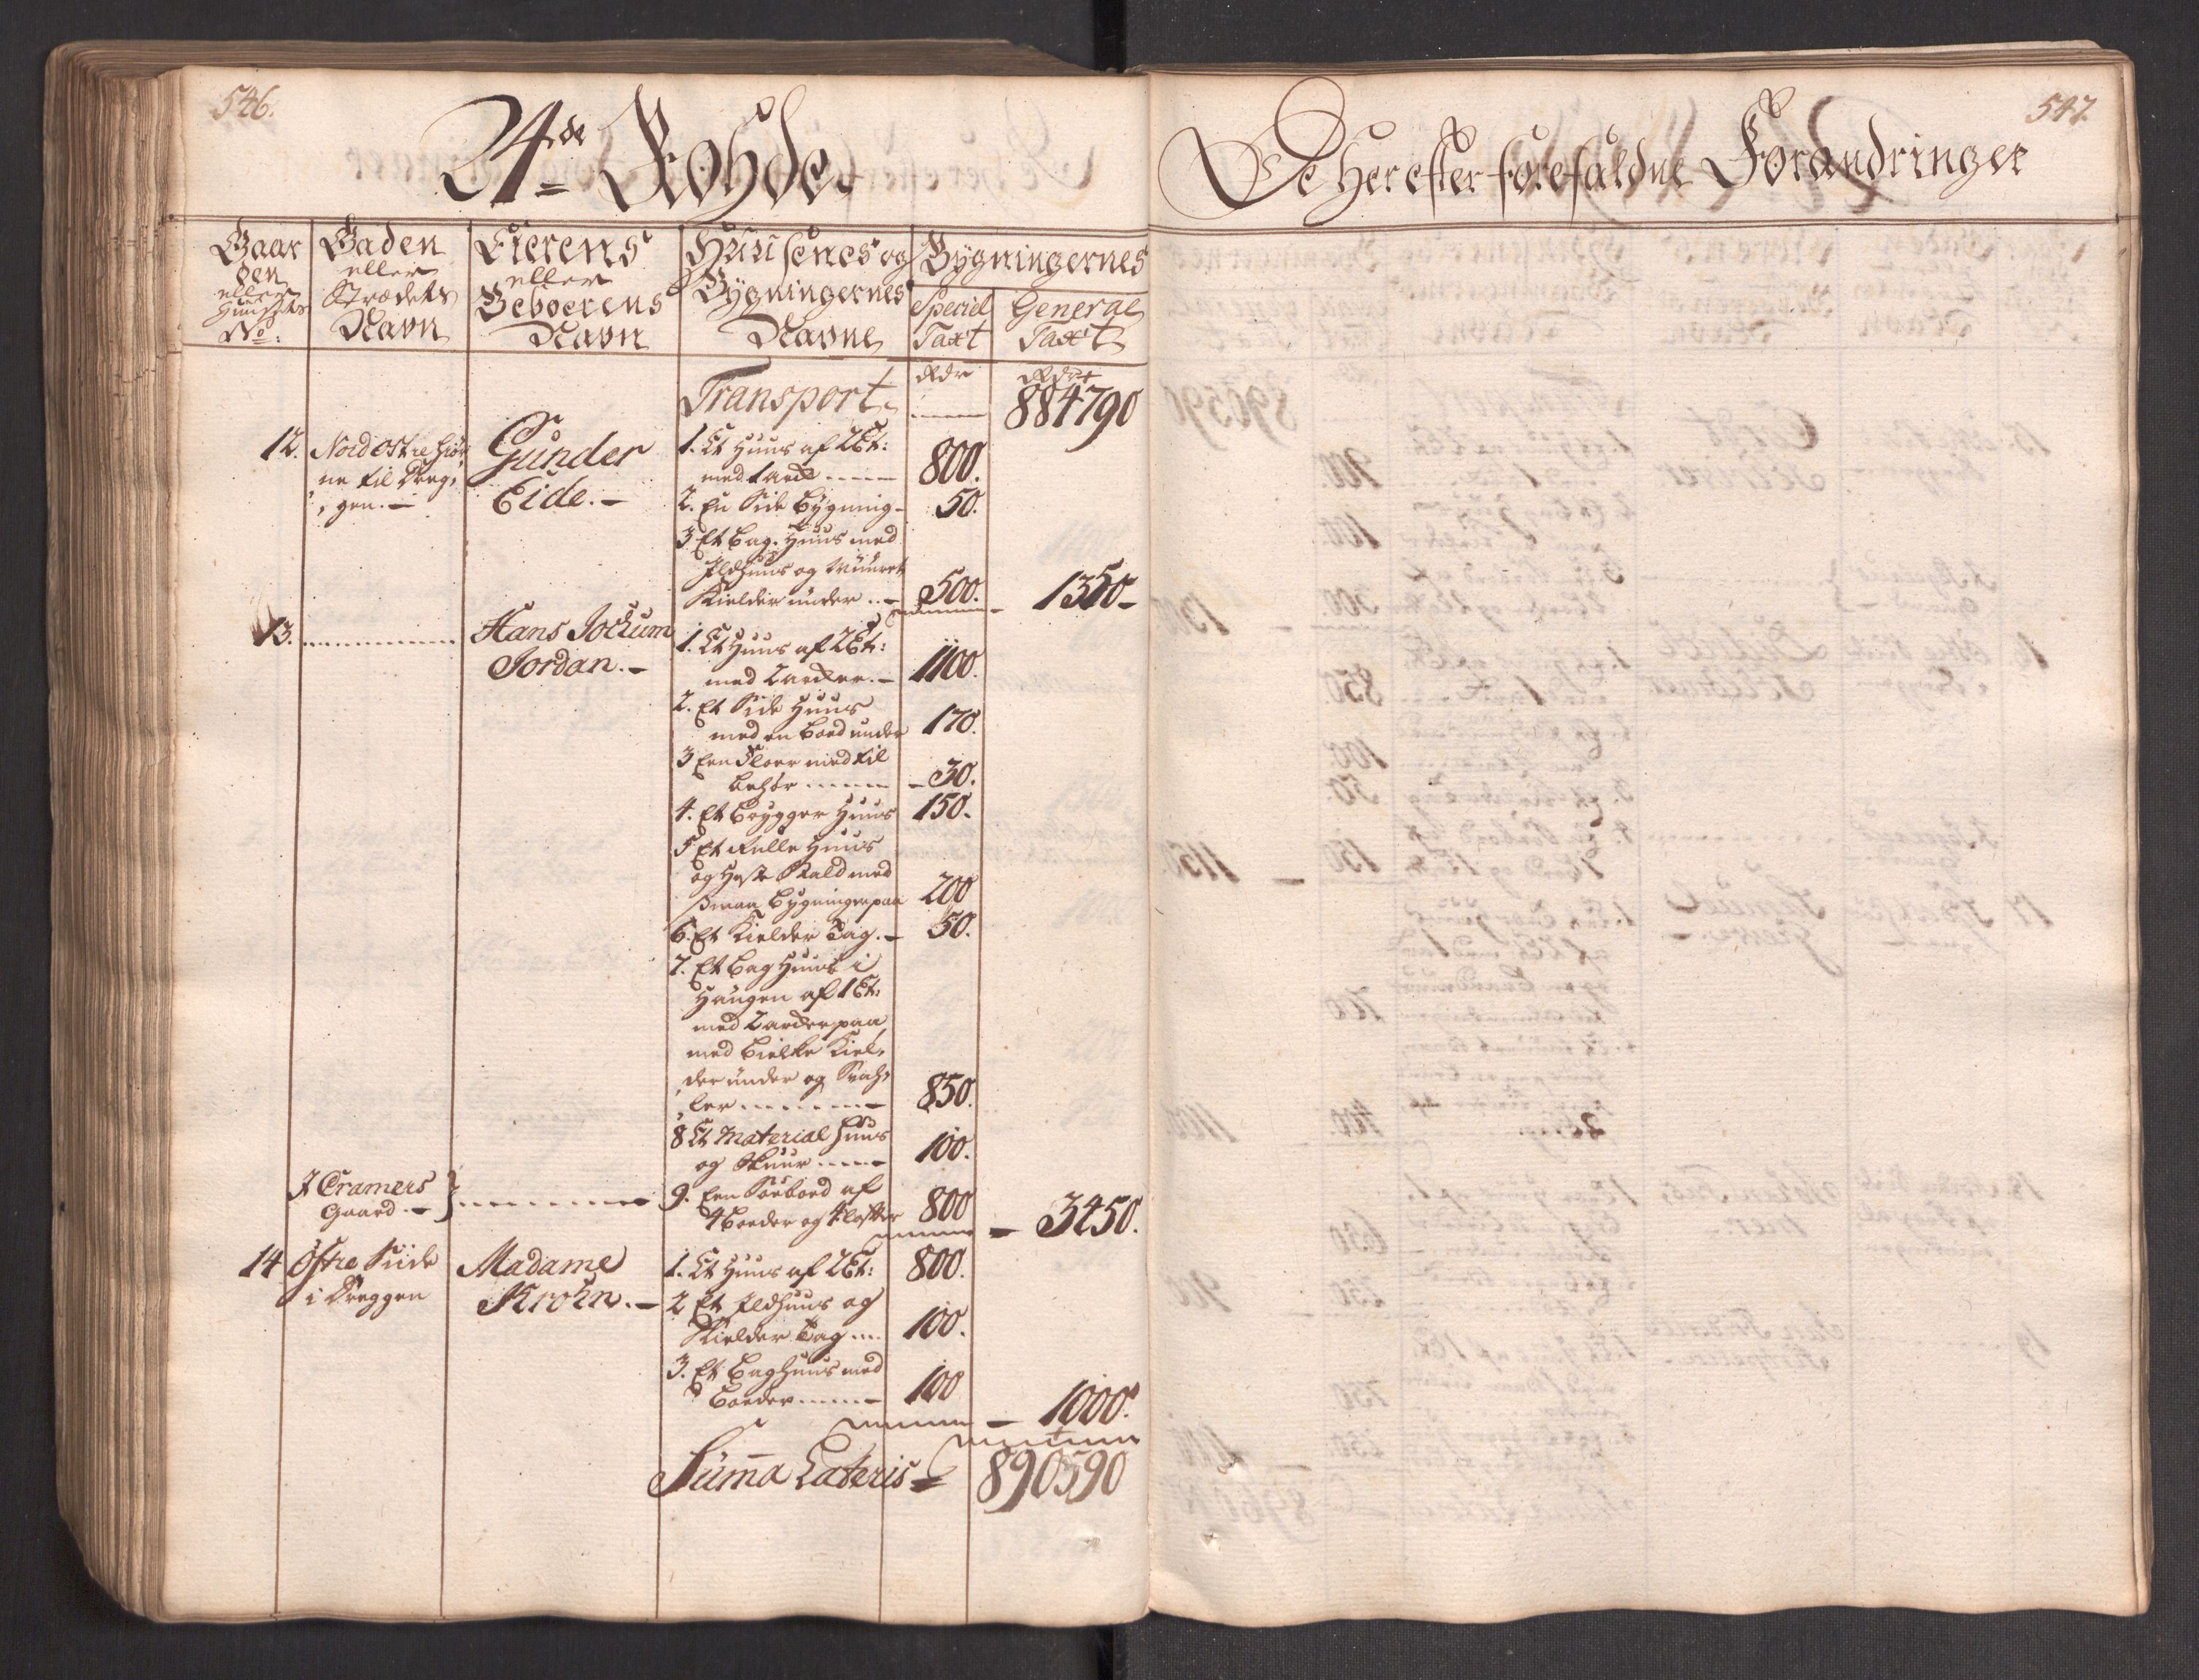 546.
24de Rohde.
Gaar
den
eller
Huusets
No:
Gaden
eller
Strædets
Navn
Eierens
eller
Beboerens
Navn
Huusenes og
Bygningernes
Navne
Bygningernes
Speciel
Taxt
General
Taxt
Transport
Rdr
Rdr
884790
12. Nordostre Hiør
ne til Dreg,
gen. —
Gunder
Eide. —
1. Et Huus af 2 Et:
med 1 ark
800.
2. En Side Bygning — 50.
3 Et Bag Huus med
Ildhuus og muuret
Kielder under 500. — 1350 —
13.
Hans Jochum
Jordan. —
1. Et Huus af 2 Et:
med 2 arker. — 1100.
2. Et Side Huus
med en boed under 170.
3 Een Floer med til
behør — 30.
4. Et Brygger Huus 150.
5 Et Rulle Huus
og Heste Stald med
smaa Bygninger paa 200
6. Et Kielder Tag. — 50.
7. Et Bag Huus i
Haugen af 1 Et:
med 2 arker paa
med Bielke Kiel,
der under og Svah,
ler 850.
8 Et Material Huus
og Skuur 100.
I Cramers
Gaard. —
9. Een Søeboed af
4 boeder og 4 lofter 800 — 3450.
14 Østre Side
i Dreggen
Madame
Krohn. —
1. Et Huus af 2 Et: 800.
2 Et Ildhuus og
Kielder Tag 100.
3. Et Baghuus med
boeder 100
— 1000.
Sum̄a Lateris 890590
547.
De Her efter forefaldne Forandringer